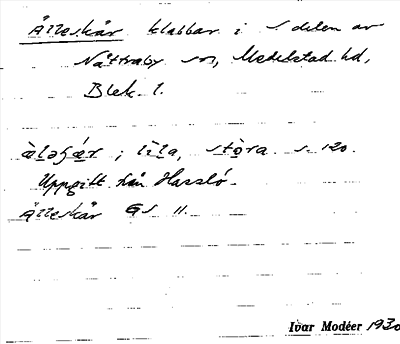 Älleskär klabbar i S delen av
Nättraby sn, Medelstad hd,
Blek. l.
lìla, stòra s. 120.
Uppgift från Hasslö.
Älleskär GS 11.
Ivar Modéer 1930